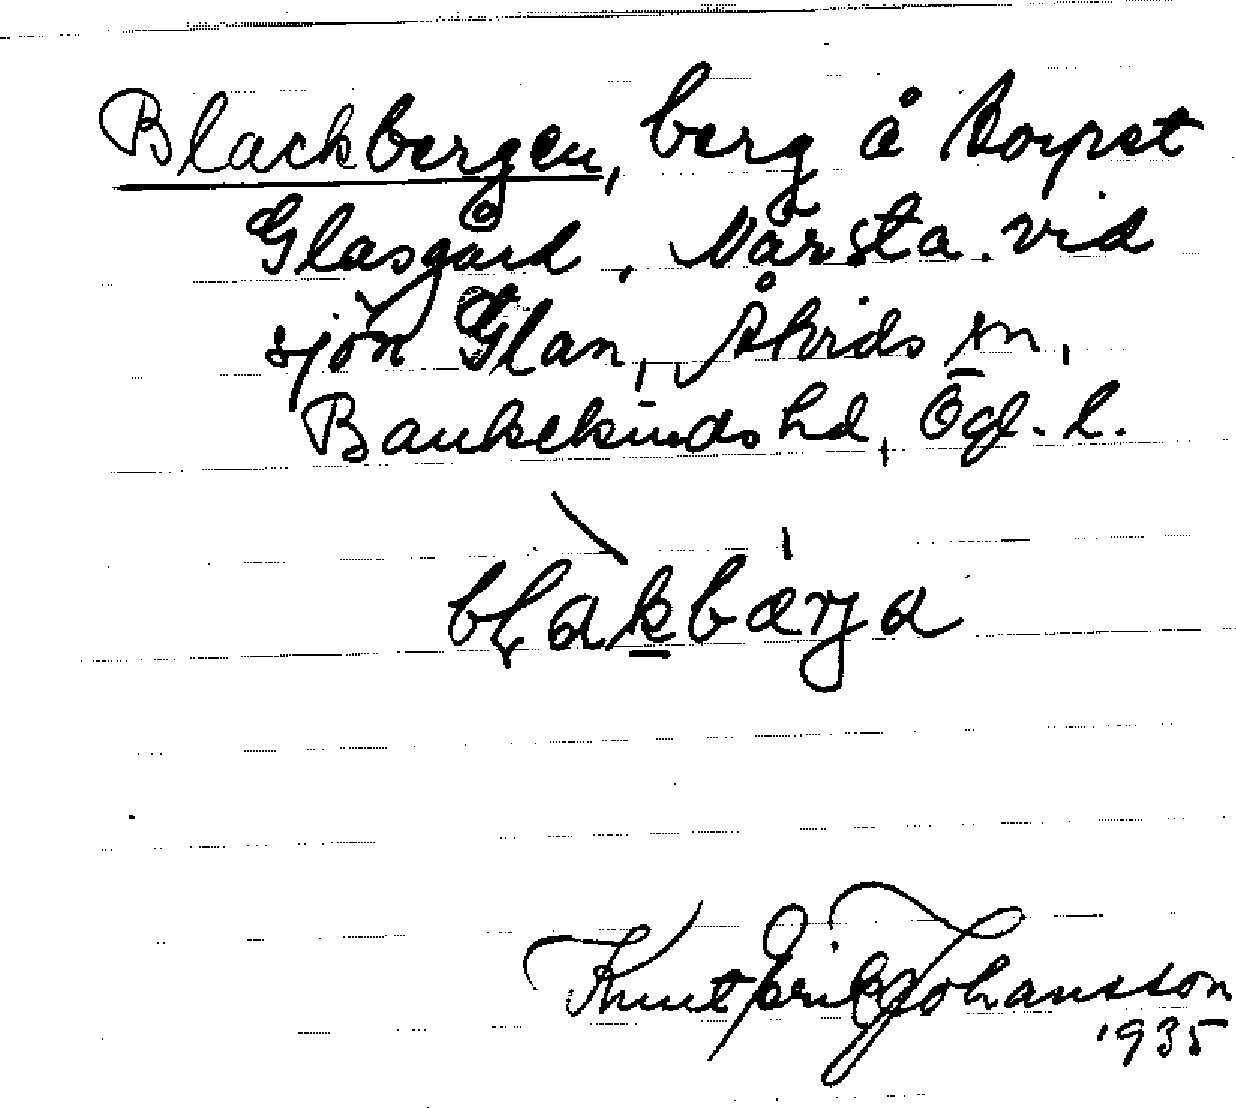 Blackbergen, berg å Torpet
Glasgård, Närsta vid
sjön Glan, Åtvids sn,
Bankekinds hd, Ögl. l.
blakbærja
Knut Erik Johansson
1935